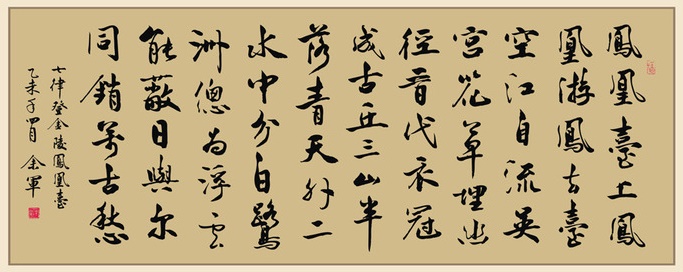 鳳凰臺上鳳
凰游鳳去臺
空江自流英
宮花草埋幽
徑晉代衣冠
成古丘三山半
落青天外二
水中分白鷺
洲總為浮雲
能蔽日與爾
同銷萬古愁
七律登金陵鳳凰臺
乙未年四月 余軍